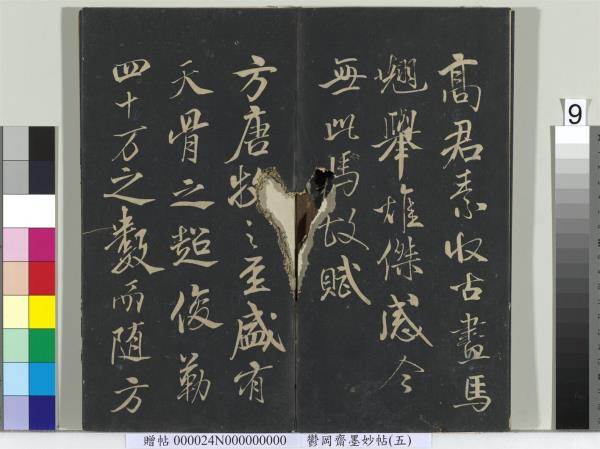 高君素收古畫馬
翹舉雄傑感今
無此馬故賦
方唐牧之至盛有
天骨之超俊勒
四十万之數而随方
9
贈帖 000024N000000000 鬱岡齋墨妙帖(五)